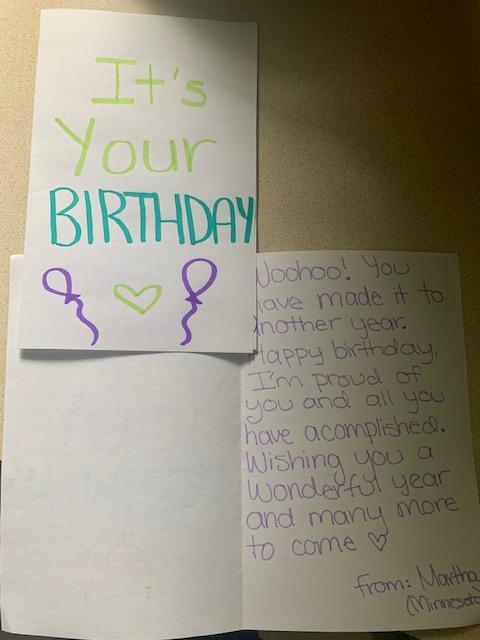 It's
Your
BIRTHDAY
Woohoo! You
have made it to
another year.
Happy birthday.
I'm proud of
you and all you
have acomplished.
Wishing you a
wonderful year
and many more
to come ♡
from: Martha
(Minnesota